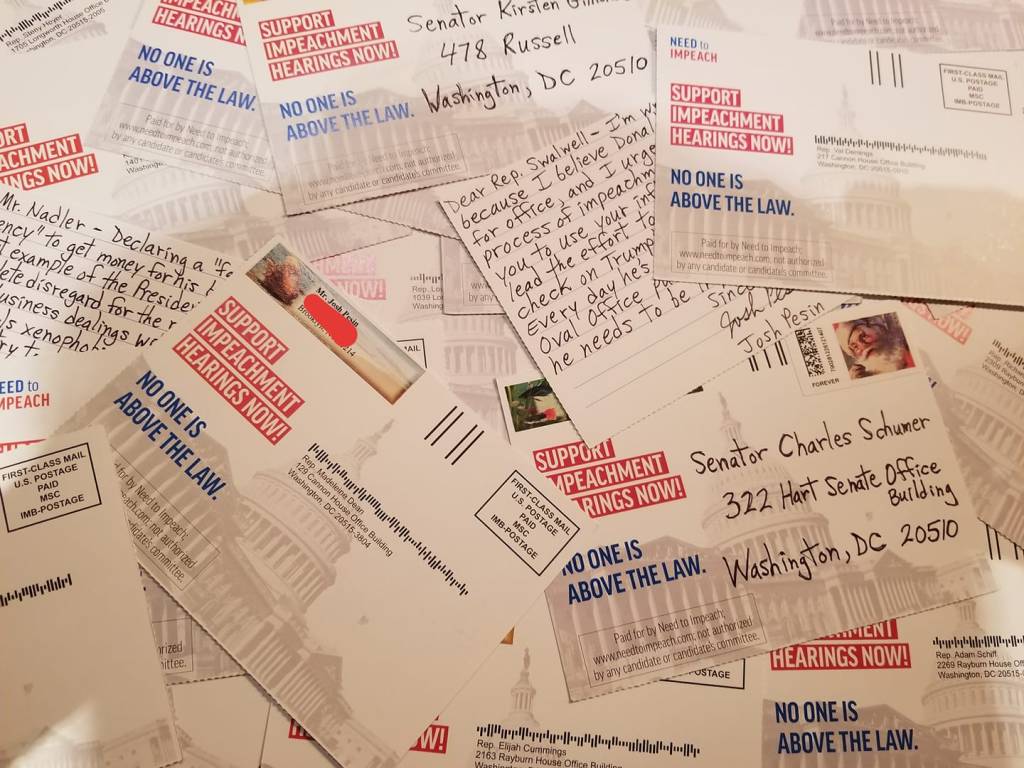 Rep. Steny Hoyer
1705 Longworth House Office B
Washington, DC 20515-2005
IMPEACHMENT
HEARINGS N
NO ONE IS
ABOVE THE LAW.
Paid for by Need to Impeach;
www.needtoimpeach.com; not authorized
by any candidate or candidate's committee.
SUPPORT
IMPEACHMENT
HEARINGS NOW!
NO ONE IS
ABOVE THE LAW.
Paid for by Need to Impeach;
www.needtoimpeach.com; not authorized
by any candidate or candidate's committee.
Senator Kirsten
478 Russell
Washington, DC 20510
NEED to
IMPEACH
SUPPORT
IMPEACHMENT
HEARINGS NOW!
NO ONE IS
ABOVE THE LAW.
Paid for by Need to Impeach;
www.needtoimpeach.com; not authorized
by any candidate or candidate's committee.
FIRST-CLASS MAIL
U.S. POSTAGE
PAID
MSC
IMB-POSTAGE
Rep. Val Demings
217 Cannon House Office Building
Dear Rep. Swalwell – I'm w
because I believe Donal
for office, and I urge
process of impeachm
you to use your inf
lead the effort to
check on Trump
Every day he's
Oval Office
he needs to be
Since
Josh
Josh Pesin
ORT
ACHMENT
NGS NOW!
Mr. Nadler – Declaring a "fa
ency" to get money for his
t example of the Presiden
ete disregard for the r
usiness dealings
s xenophob
EED to
MPEACH
FIRST-CLASS MAIL
U.S. POSTAGE
PAID
MSC
IMB-POSTAGE
Mr. Josh Pesin
SUPPORT
IMPEACHMENT
HEARINGS NOW!
NO ONE IS
ABOVE THE LAW.
d for by Need to Impeach;
each.com; not authorized
ndidate's committee.
Rep. Madeleine Dean
129 Cannon House Office Building
Washington, DC 20515-3804
FIRST-CLASS MAIL
U.S. POSTAGE
PAID
MSC
IMB-POSTAGE
FOREVER
SUPPORT
IMPEACHMENT
RINGS NOW!
NO ONE IS
ABOVE THE LAW.
Paid for by Need to Impeach;
www.needtoimpeach.com; not authorized
by any candidate or candidate's committee.
Senator Charles Schumer
322 Hart Senate Office
Building
Washington, DC 20510
HMENT
HEARINGS NOW!
NO ONE IS
ABOVE THE LAW.
Rep. Adam Schiff
2269 Rayburn House Offi
Washington, DC 20515-0
W!
Rep. Elijah Cummings
2163 Rayburn House Office Building